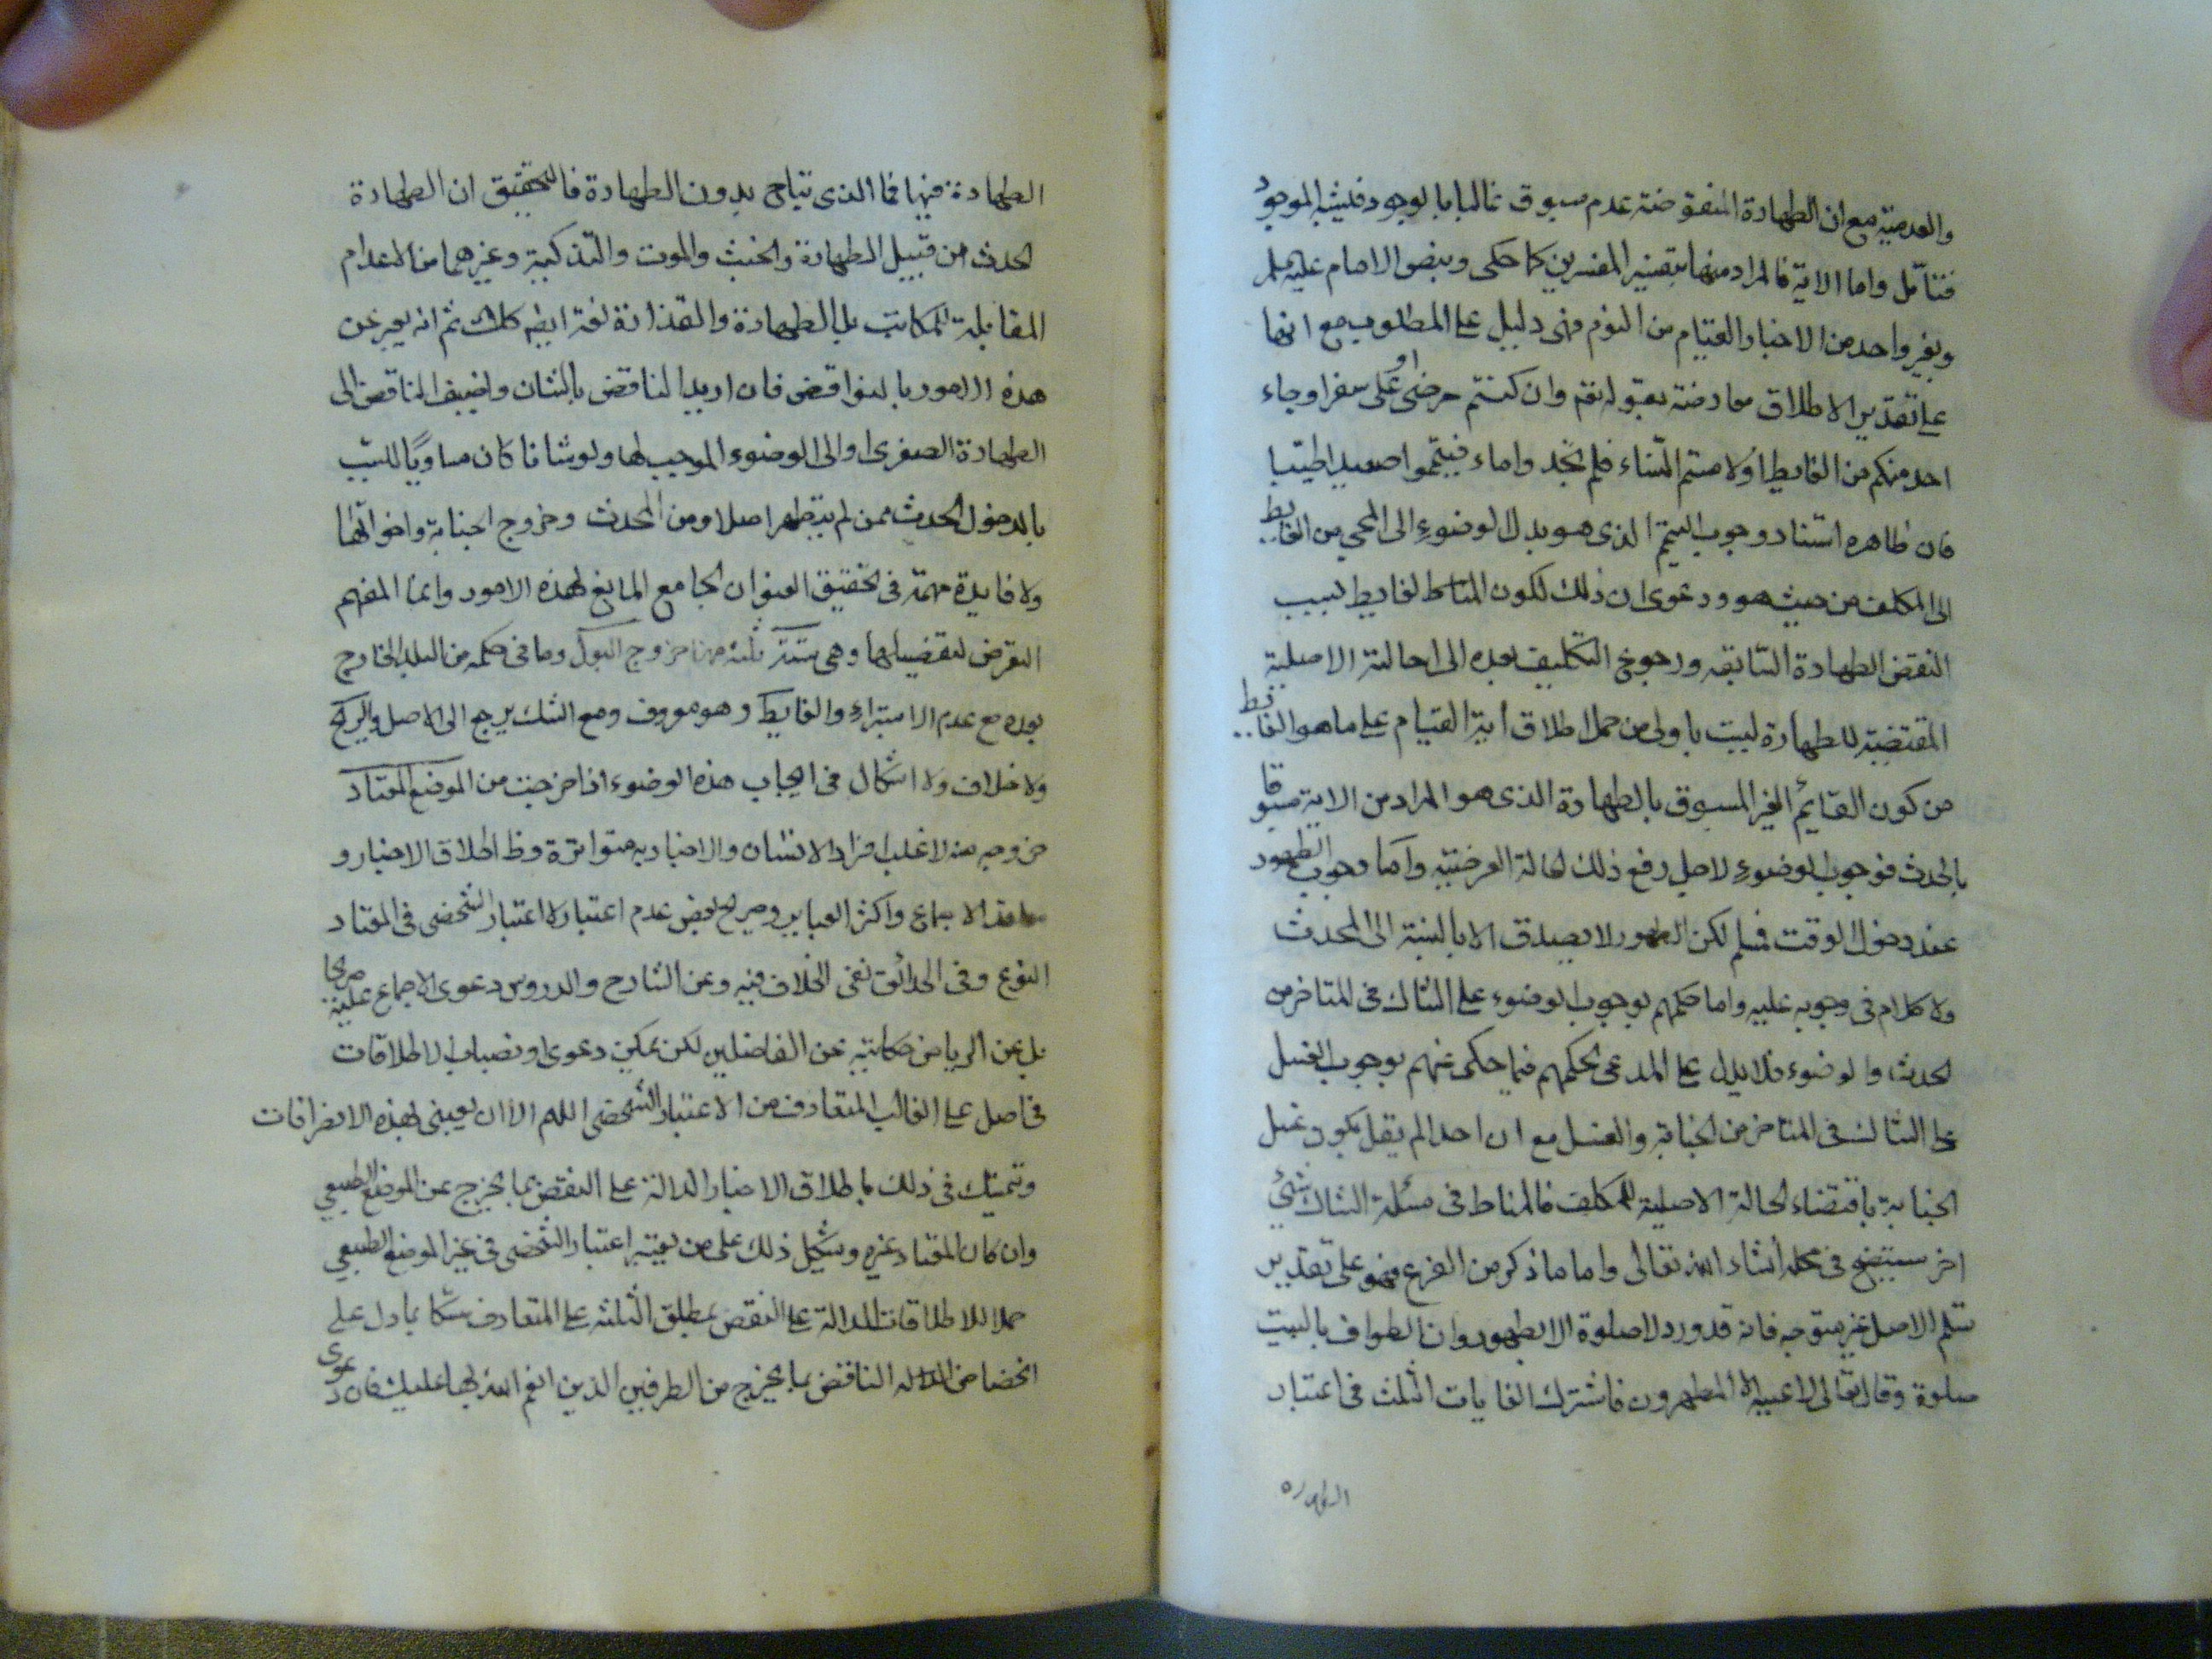 والعدمية مع ان الطهارة المنقوضة عدم مسبوق غالبا بالوجود فليشبه الموجود
فتأمل واما الاية فالمراد منها بتفسير المفسرين كما حكى وبنص الامام عليه السلم
وبغير واحد من الاخبار القيام من النوم فهى دليل على المطلوب مع انها
على تقدير الاطلاق معارضة بقوله تعم وان كنتم مرضى او على سفر او جاء
احد منكم من الغايط او لامستم النساء فلم تجدوا ماء فتيمموا صعيدا طيبا
فان ظاهره استناد وجوب التيمم الذى هو بدل الوضوء الى المجى من الغايط
الى المكلف من حيث هو ودعوى ان ذلك لكون الغايط لسبب
النقض الطهارة السابقه ورجوع التكليف بعده الى الحالة الاصلية
المقتضية للطهارة ليست باولى من حمل اطلاق اية القيام على ما هو الغالب
من كون القائم الغير المسبوق بالطهارة الذى هو المراد من الاية مسبوقا
بالحدث فوجوب الوضوء لاجل رفع ذلك الحالة العرضية واما وجوب الطهور
عند دخول الوقت فمسلم لكن الطهور لا يصدق الا بالنسبة الى المحدث
ولا كلام فى وجوبه عليه واما حكمهم بوجوب الوضوء على الشاك فى المتاخر من
الحدث والوضوء فلا يدل على المدعى لحكمهم فيما حكى عنهم بوجوب الغسل
على الشاك فى المتاخر من الجنابة والغسل مع ان احدا لم يقل بكون غسل
الجنابة باقتضاء الحالة الاصلية للمكلف فالمناط فى مسئلة الشاك شئ
اخر سيتضح فى محله انشاء الله تعالى واما ما ذكر من الفرع فهو على تقدير
تسلم الاصل غير متوجه فانه قد ورد لا صلوة الا بطهور وان الطواف بالبيت
صلوة وقال تعالى لا يمسه الا المطهرون فاشترك الغايات الثلث فى اعتبار
الطهارة
الطهارة فيها فما الذى يباح بدون الطهارة فالتحقيق ان الطهارة
الحدث من قبيل الطهارة والخبث والموت والتذكية وغيرهما من الاعدام
المقابلة للملكات بل الطهارة والقذارة لغة ايضم كذلك ثم انه يعبر عن
هذه الامور بالنواقض فان اريد الناقض بالشان واضيف الناقض الى
الطهارة الصغرى او الى الوضوء الموجب لها ولو شانا كان مساويا للسبب
بالدخول الحدث ممن لم يتطهر اصلا ومن المحدث وخروج الجنابة واخواتها
ولا فايدة مهمة فى تحقيق العنوان الجامع المانع لهذه الامور وانما المهم
التعرض لتفصيلها وهى ستة ثلثة منها خروج البول وما فى حكمه من البلل الخارج
بعده مع عدم الاستبراء والغايط وهو معروف ومع الشك يرجع الى الاصل والريح
ولا خلاف ولا اشكال فى ايجاب هذه الوضوء اذا خرجت من الموضع المعتاد
خروجه منه لاغلب افراد الانسان والاخبار به متواترة وظ اطلاق الاخبار و
معاقد الاجماع واكثر العباير وصريح بعض عدم اعتبار الاعتبار الشخصى فى المعتاد
النوع وفى الحدائق نفى الخلاف فيه وعن الشارح والدروس دعوى الاجماع عليه صريحا
بل عن الرياض حكايته عن الفاضلين لكن يمكن دعوى انصباب الاطلاقات
فى اصل على الغالب المتعارف من الاعتبار الشخصى اللهم الا ان يعتنى بهذه الانصرافات
وتمسك فى ذلك باطلاق الاخبار الدالة على النقض بما يخرج عن الموضع الطبيعى
وان كان المعتاد غيره ويشكل ذلك على من يعتبر اعتبار الشخصى فى غير الموضع الطبيعى
حملا للاطلاقات الدالة على النقض بمطلق الثلثة على المتعارف متمسكا بما دل على
انحصار الناقض بما يخرج من الطرفين الذين انعم الله بها عليك فان دعوى